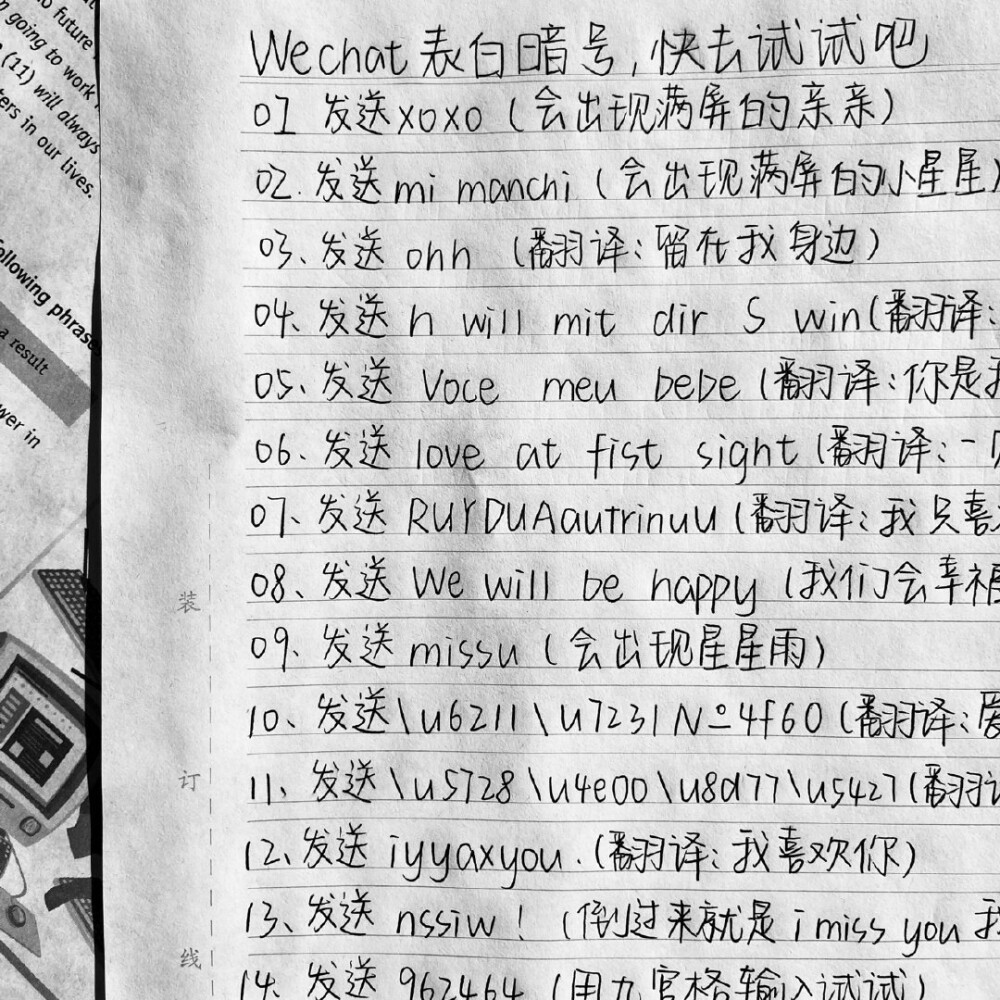 o future
n going to work
(11) will always
ters in our lives.
ollowing phrase
a result
wer in
Wechat 表白暗号,快去试试吧
01 发送xoxo (会出现满屏的亲亲)
02. 发送mi manchi (会出现满屏的小星星)
03、发送 ohh (翻译:留在我身边)
04、发送 h will mit dir S win(翻译:
05、发送 Voce meu bebe (翻译:你是我
06、发送 love at fist sight (翻译:一见
07、发送 RUYDUAautrinuu (翻译:我只喜
08、发送 We will be happy (我们会幸福
09、发送 missu (会出现星星雨)
10、发送\u6211\u7231№4f60 (翻译:爱
11、发送\u5728\u4e00\u8d77\u5427(翻译
12、发送 iyyaxyou.(翻译:我喜欢你)
13、发送 nssiw! (倒过来就是 i miss you 我
14、发送 962464 (用九宫格输入试试)
装
订
线